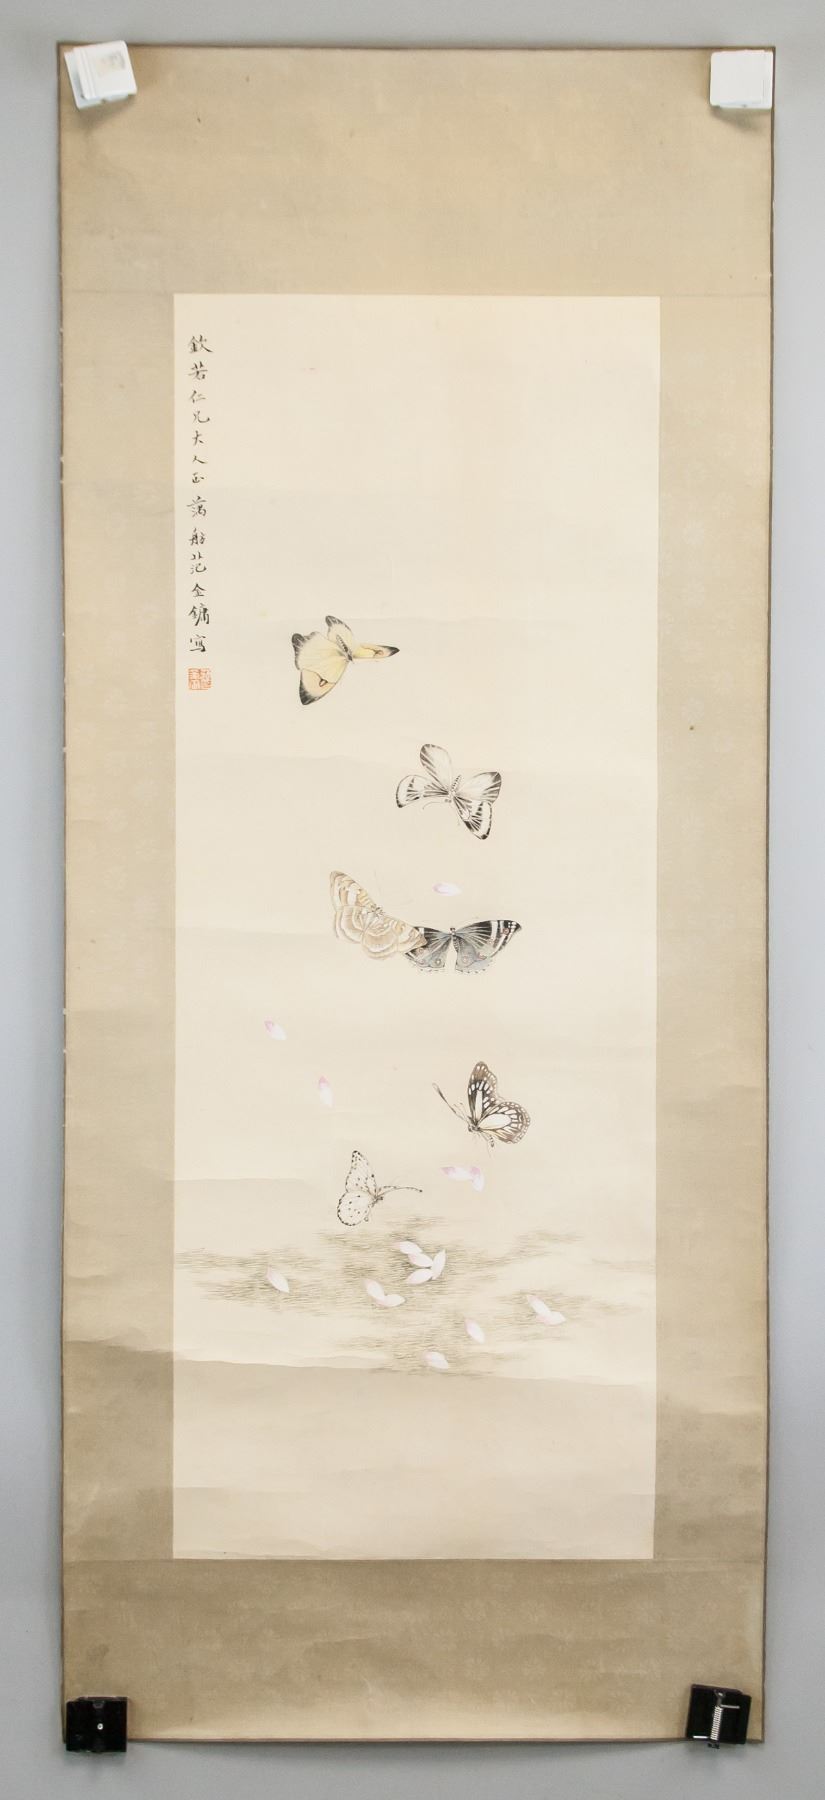 欽若仁兄大人正 藕舫范金鏞寫